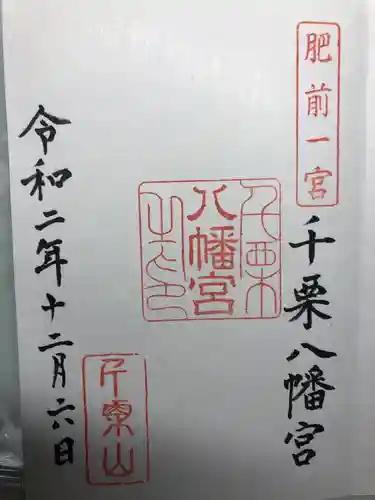 肥前一宮
千栗八幡宮
千栗八幡宮之印
令和二年十二月六日